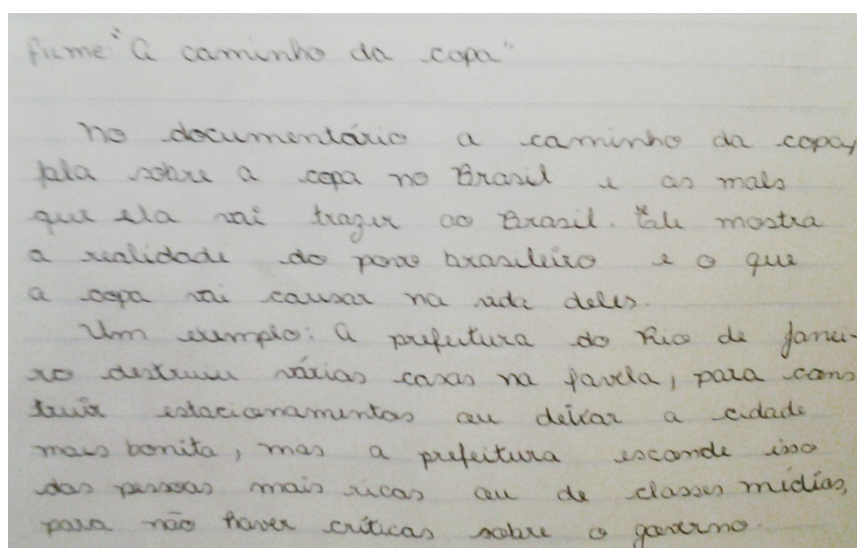 filme "A caminho da copa"
No documentário a caminho da copa,
fala sobre a copa no Brasil e os males
que ela vai trazer ao Brasil. Ele mostra
a realidade do povo brasileiro e o que
a copa vai causar na vida deles.
Um exemplo: A prefeitura do Rio de Janei-
ro destruiu várias casas na favela, para cons
truir estacionamentos ou deixar a cidade
mais bonita, mas a prefeitura esconde isso
das pessoas mais ricas ou de classes mídias,
para não haver críticas sobre o governo.